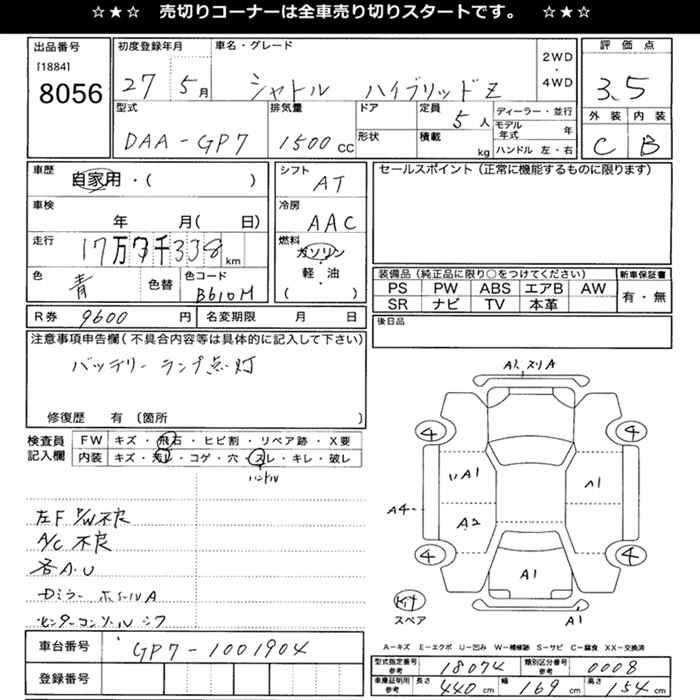 ☆★☆ 売切りコーナーは全車売り切りスタートです。 ☆★☆
出品番号
[1884]
8056
初度登録年月
27 5月
車名・グレード
シャトル ハイブリッドZ
2WD
・
4WD
評価点
3.5
外装 内装
C B
型式
DAA-GP7
排気量
1500cc
ドア
形状
定員
5人
積載
kg
ディーラー・並行
モデル年式 年
ハンドル 左・右
車歴
自家用・( )
車検
年 月( 日)
走行
17万7千338km
色
青
色替
色コード
B610M
シフト
AT
冷房
AAC
燃料
ガソリン
・
軽・油
・
( )
セールスポイント(正常に機能するものに限ります)
装備品(純正品に限り○をつけてください)
PS PW ABS エアB AW
SR ナビ TV 本革
新車保証書
有・無
R券 9600円
名変期限 月 日
後日品
注意事項申告欄(不具合内容等は具体的に記入して下さい)
バッテリーランプ点灯
修復歴 有 〔箇所 〕
検査員
記入欄
FW キズ・飛石・ヒビ割・リペア跡・X要
内装 キズ・汚レ・コゲ・穴・スレ・キレ・破レ
ハンドル
左F P/W不良
A/C 不良
各A・U
Dミラー ホイールA
センターコンソール
A1 スリA
4 4
A1 A1
A4
A2
4 4
A1
A1
スペア
A=キズ E=エクボ U=凹み W=補修跡 S=サビ C=腐食 XX=交換済
車台番号
GP7-1001904
登録番号
型式指定番号
参考
18074
類別区分番号
参考
0008
車庫証明用
参考
長さ 440cm
幅 169cm
高さ 154cm